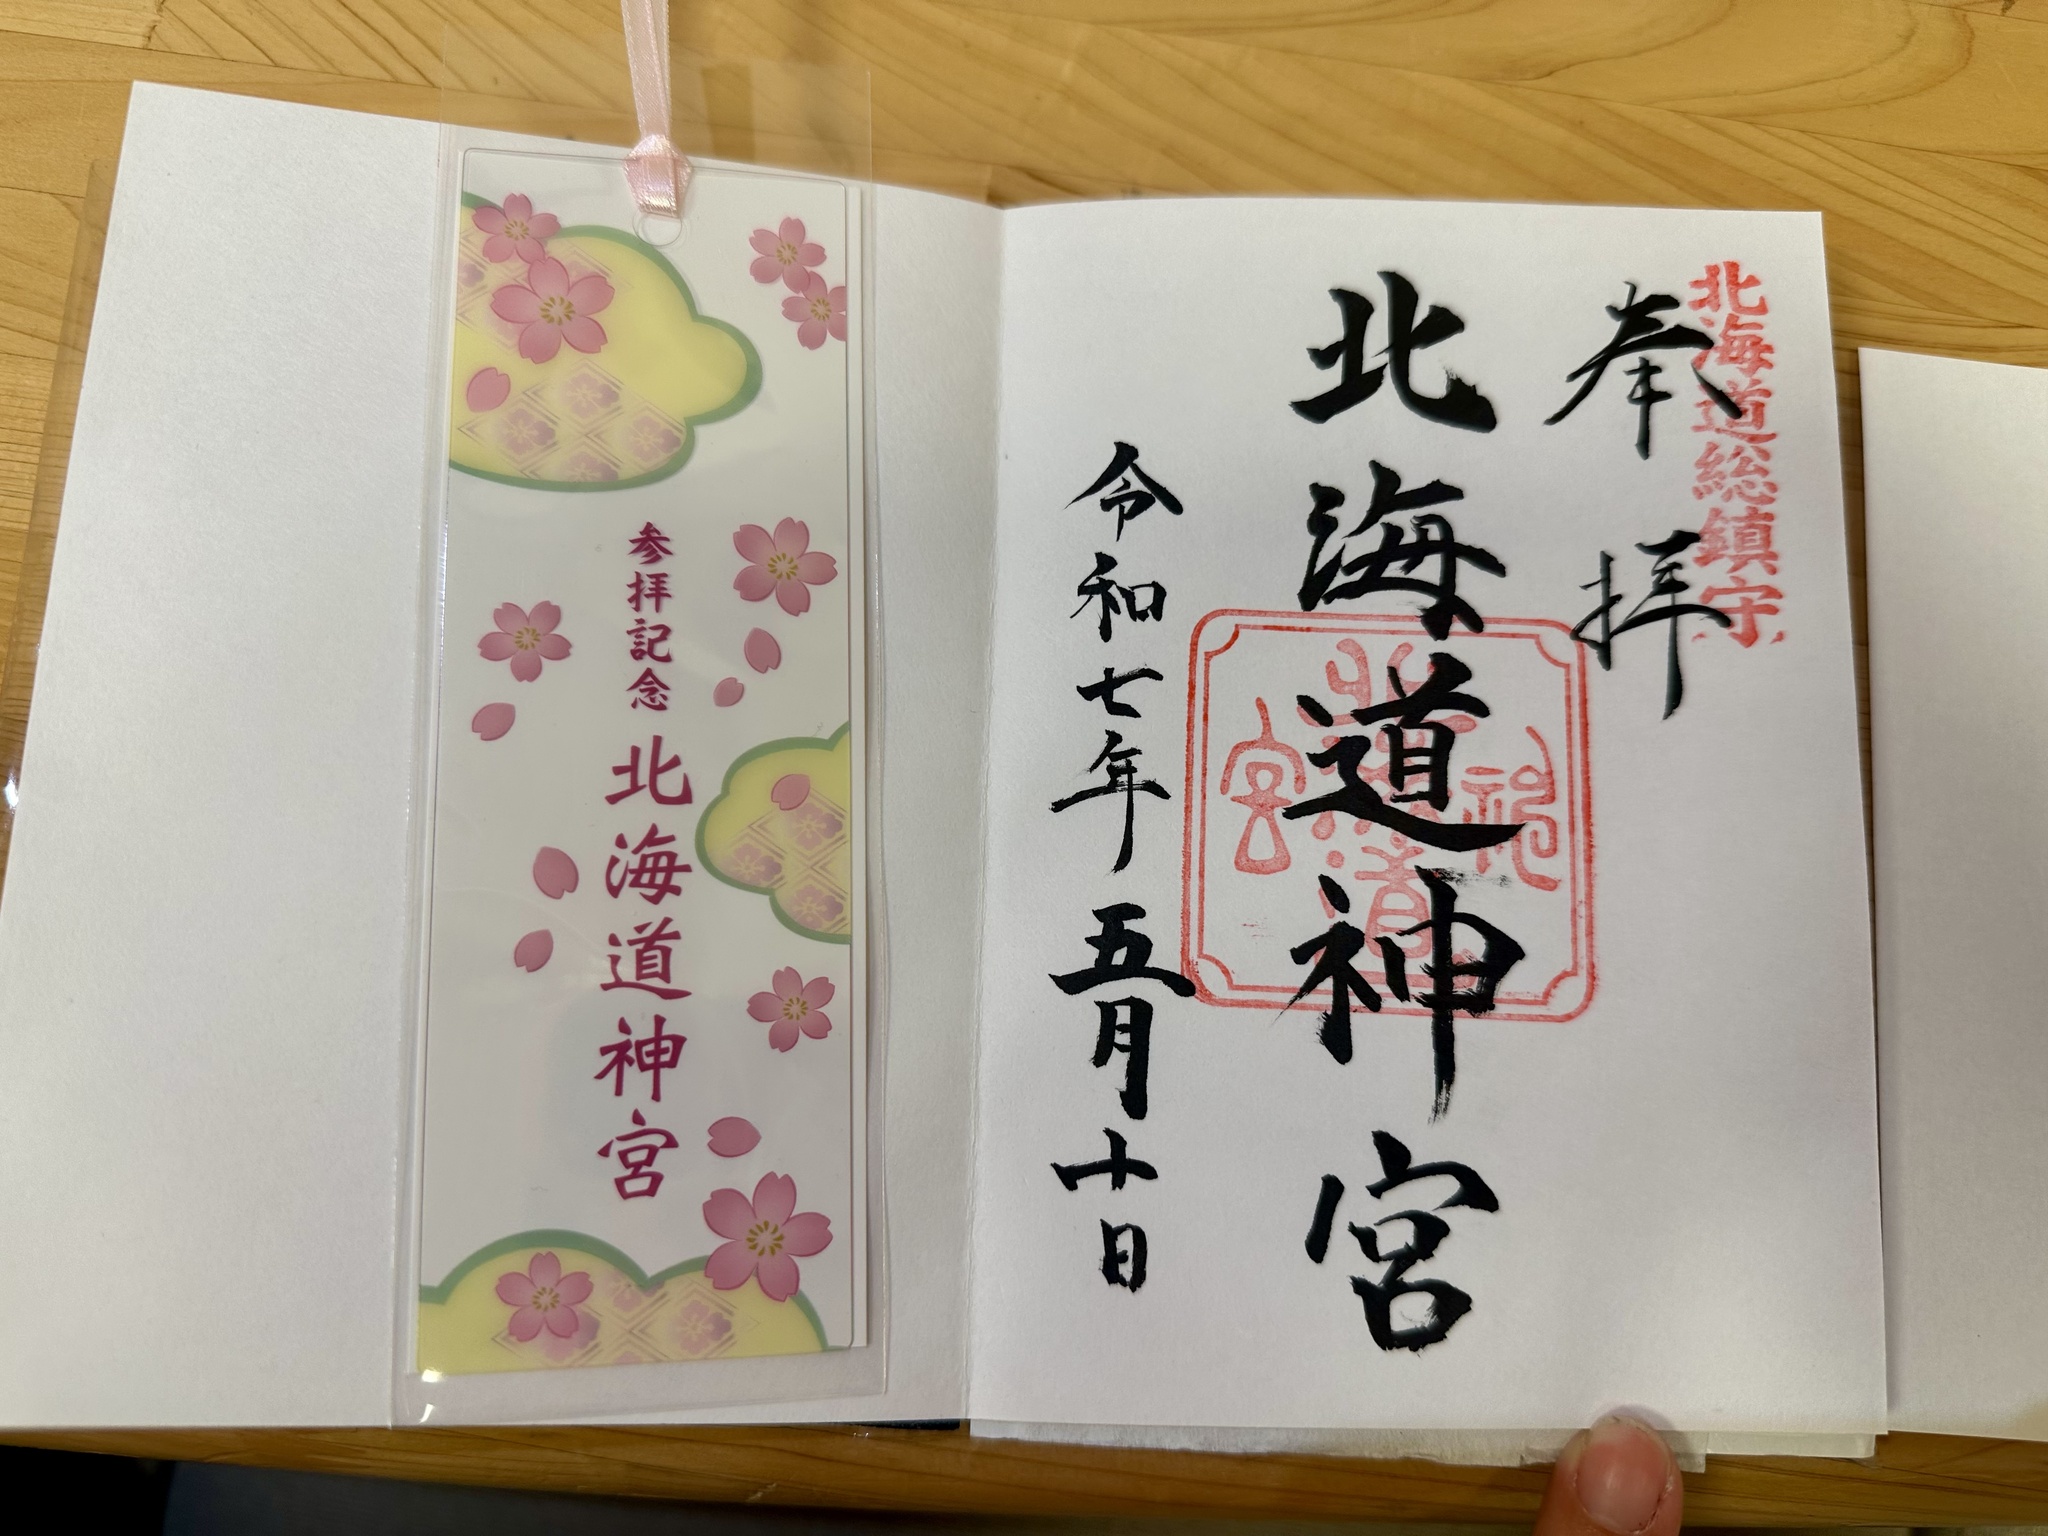 北海道総鎮守
奉拝
北海道神宮
令和七年五月十日
参拝記念 北海道神宮